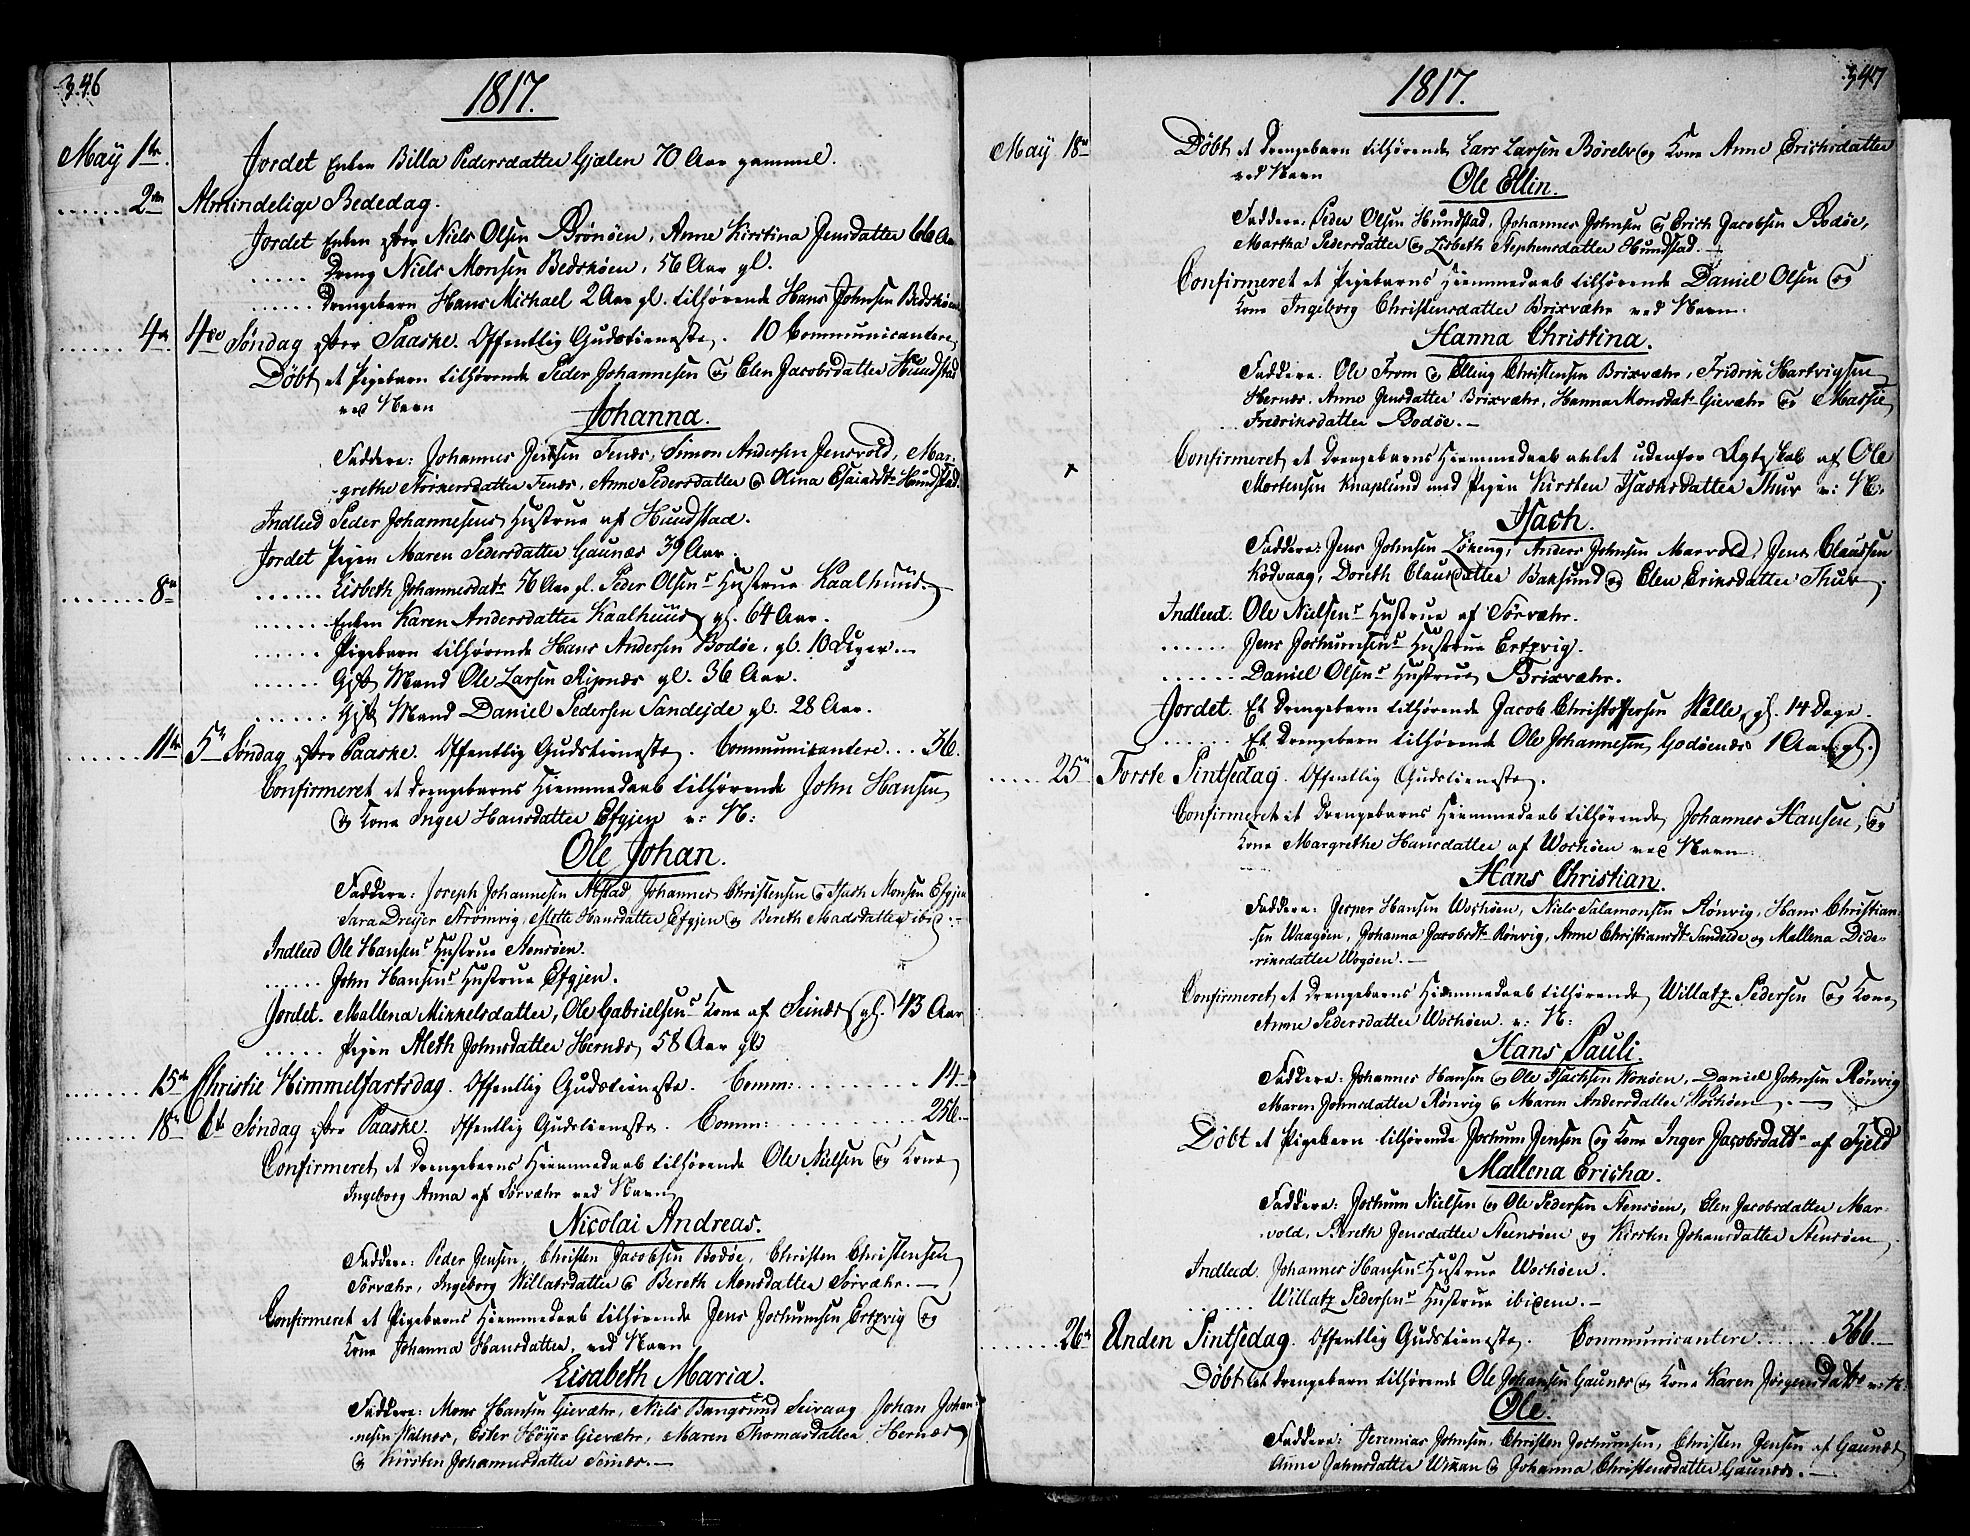 346
1817.
May 1te. Jordet Enken Billa Pedersdatter Gjælen 70 Aar gammel.
2den Almindelige Bededag.
Jordet Enken efter Niels Olsen Brönöen, Anne Kirstina Jensdatter 66 Aar
Dreng Niels Monsen Bedsköen, 56 Aar gl.
Drengebarn Hans Michael 2 Aar gl. tilhörende Hans Johnsen Bedsköen
4de 4de Söndag efter Paaske. Offentlig Gudstieneste. 10 Communicantere
Döbt et Pigebarn tilhörende Peder Johannesen og Elen Jacobsdatter Hundstad
ved Navn
Johanna.
Faddere: Johannes Jensen Fenes, Simon Andersen Jensvold, Mar-
grethe Törkersdatter Fenes, Anne Pedersdatter og Olina Esaiædtr Hundstad.
Indleed Peder Johannesens Hustrue af Hundstad.
Jordet Pigen Maren Pedersdatter Gaunæs 39 Aar.
8de Lisbeth Johannesdatr 56 Aar gl. Peder Olsens Hustrue Kaalhuus
Enken Karen Andersdatter Kaalhuus gl. 64 Aar.
Pigebarn tilhörende Hans Andersen Bodöe, gl. 10 Uger
Gift Mand Ole Larsen Ripnæs gl. 36 Aar.
Gift Mand Daniel Pedersen Sandejde gl. 28 Aar.
11te 5te Söndag efter Paaske. Offentlig Gudstieneste. Communicantere... 36.
Confirmeret et Drengebarns Hiemmedaab tilhörende John Hansen
og Kone Inger Hansdatter Efgjen v: N:
Ole Johan.
Faddere: Joseph Johannesen Alstad, Johannes Christensen og Isach Monsen Efgjen
Sara Dreyer Strömvig, Mette Hansdatter Efgjen og Bereth Madsdatter ibid.
Indleed Ole Hansens Hustrue Stensöen.
John Hansens Hustrue Efgjen.
Jordet. Mallena Mikkelsdatter, Ole Gabrielsens Kone af Seines gl. 43 Aar
Pigen Aleth Johnsdatter Hernæs 58 Aar gl
15de Christie Himmelfartsdag. Offentlig Gudstieneste. Comm: 14.
18de 6te Söndag efter Paaske. Offentlig Gudstieneste. Comm: 256.
Confirmeret et Drengebarns Hiemmedaab tilhörende Ole Nielsen og Kone
Ingeborg Anna af Sörvæhr ved Navn
Nicolai Andreas.
Faddere: Peder Jensen, Christen Jacobsen Bodöe, Christen Christensen
Sörvæhr, Ingeborg Willatsdatter og Bereth Monsdatter Sörvæhr.
Confirmeret et Pigebarns Hiemmedaab tilhörende Jens Jochumsen Ertzvig og
Kone Johanna Hansdatter, ved Navn
Elisabeth Maria.
Faddere: Mons Hansen Gievæhr, Niels Bangsund Seivaag Johan Johan-
nesen Valnes, Ester Höyer Gievæhr, Maren Thomasdatter Hernæs
og Kirsten Johannesdatter Seines.
347
1817.
May 18de Döbt et Drengebarn tilhörende Lars Larsen Börelv og Kone Anne Erichsdatter
ved Navn
Ole Ellin.
Faddere: Peder Olsen Hundstad, Johannes Johnsen og Erich Jacobsen Bodöe,
Martha Pedersdatter og Lisbeth Stephensdatter Hundstad.
Confirmeret et Pigebarns Hiemmedaab tilhörende Daniel Olsen og
Kone Ingeborg Christensdatter Brixvæhr ved Navn.
Hanna Christina.
Faddere: Ole From og Elling Christensen Brixvæhr, Fridrik Hartvigsen
Hernæs. Anne Jensdatter Brixvæhr, Hanna Monsdatr Gievæhr og Massie
Fredriksdatter Bodöe.
x Confirmeret et Drengebarns Hiemmedaab avlet udenfor Ægteskab af Ole
Mortensen Knaplund med Pigen Kirsten Isachsdatter Thuv v: N:
Isach.
Faddere: Jens Johnsen Lökeng, Anders Johnsen Marvold, Jens Claussen
Kodvaag, Doreth Clausdatter Baksund og Elen Eriksdatter Thuv.
Indleed. Ole Nielsens Hustrue af Sörvæhr.
Jens Jochumsens Hustrue Ertzvig.
Daniel Olsens Hustrue Brixvæhr.
Jordet. Et Drengebarn tilhörende Jacob Christoffersen Valle, gl. 14 Dage.
Et Drengebarn tilhörende Ole Johannesen Godöenæs 1 Aar gl.
25de Förste Pintsedag. Offentlig Gudstieneste.
Confirmeret et Drengebarns Hiemmedaab tilhörende Johannes Hansen, og
Kone Margrethe Hansdatter af Wochöen ved Navn
Hans Christian.
Faddere: Jesper Hansen Wochöen, Niels Salamonsen Rönvig, Hans Christian-
sen Waagöen, Johanna Jacobsdtr Rönvig, Anne Christiansdtr Sandeide og Mallena Dide-
riksdatter Wogöen.
Confirmeret et Drengebarns Hiemmedaab tilhörende Willatz Pedersen og Kone
Anne Pedersdatter Wochöen. v: N:
Hans Pauli.
Faddere: Johannes Hansen og Ole Isachsen Woköen, Daniel Johnsen Rönvig
Maren Johnsdatter Rönvig og Maren Andersdatter Wochöen.
Döbt et Pigebarn tilhörende Jochum Jensen og Kone Inger Jacobsdatr af Fjeld
Mallena Ericha.
Faddere: Jochum Nielsen og Ole Pedersen Stensöen, Elen Jacobsdatter Mar-
vold, Bereth Jensdatter Steensöen og Kirsten Johansdatter Stensöen
Indleed. Johannes Hansens Hustrue Wochöen.
Willatz Pedersens Hustrue ibidem.
26de Anden Pintsedag. Offentlig Gudstieneste. Communicantere 366.
Döbt et Drengebarn tilhörende Ole Johansen Gaunes og Kone Karen Jörgensdatr v: N:
Ole.
Faddere: Jeremias Johnsen, Christen Jochumsen, Christen Jensen af Gaunes
Anne Johnsdatter Wikan og Johanna Christensdatter Gaunes.